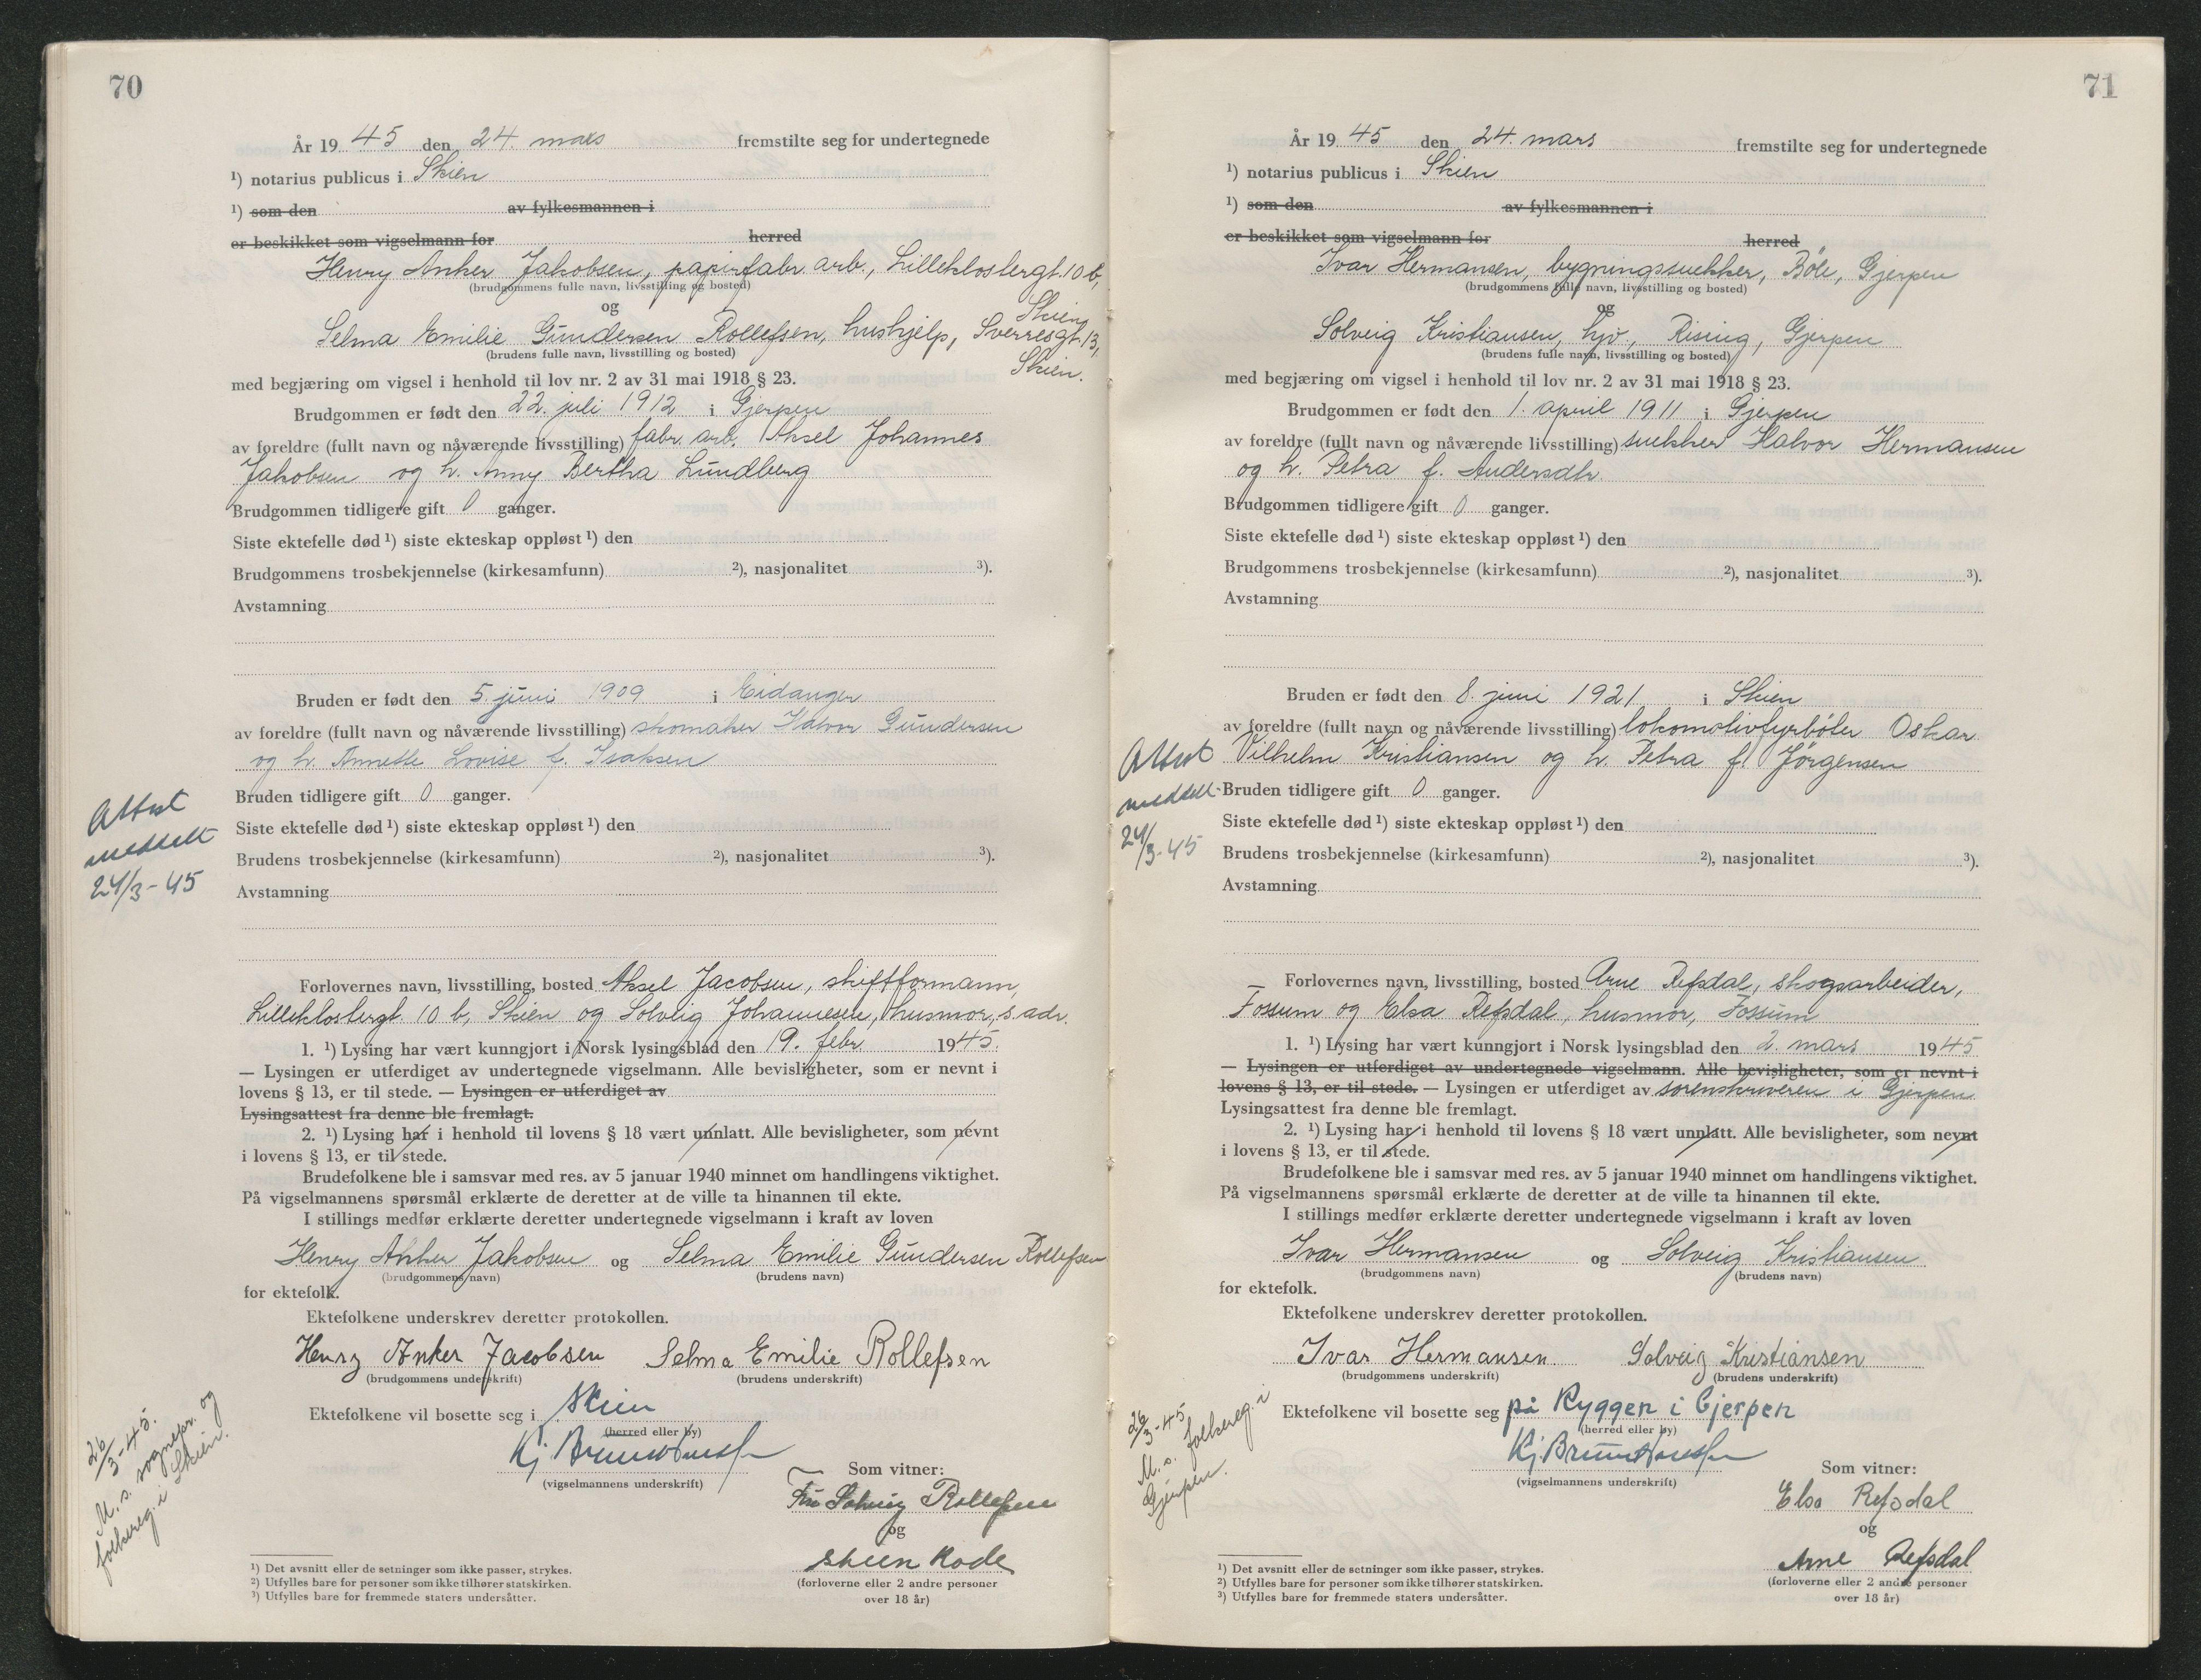 70
År 1945 den 24. mars fremstilte seg for undertegnede
¹) notarius publicus i Skien
¹) som den av fylkesmannen i
er beskikket som vigselmann for herred
Henry Anker Jakobsen, papirfabr. arb., Lilleklostergt. 10 b,
Skien
(brudgommens fulle navn, livsstilling og bosted)
og
Selma Emilie Gundersen Rollefsen, hushjelp, Sverresgt. 13,
Skien.
(brudens fulle navn, livsstilling og bosted)
med begjæring om vigsel i henhold til lov nr. 2 av 31 mai 1918 § 23.
Brudgommen er født den 22. juli 1912 i Gjerpen
av foreldre (fullt navn og nåværende livsstilling) fabr. arb. Aksel Johannes
Jakobsen og h. Anny Bertha Lundberg
Brudgommen tidligere gift 0 ganger.
Siste ektefelle død ¹) siste ekteskap oppløst ¹) den
Brudgommens trosbekjennelse (kirkesamfunn) ²), nasjonalitet ³).
Avstamning
Bruden er født den 5. juni 1909 i Eidanger
av foreldre (fullt navn og nåværende livsstilling) skomaker Halvor Gundersen
og h. Annette Lovise f. Isaksen
Bruden tidligere gift 0 ganger.
Siste ektefelle død ¹) siste ekteskap oppløst ¹) den
Brudens trosbekjennelse (kirkesamfunn) ²), nasjonalitet ³).
Avstamning
Attest
meddelt
24/3-45
Forlovernes navn, livsstilling, bosted Aksel Jacobsen, skiftformann,
Lilleklostergt. 10 b, Skien og Solveig Johannesen, husmor, s. adr.
1. ¹) Lysing har vært kunngjort i Norsk lysingsblad den 19. febr. 1945.
— Lysingen er utferdiget av undertegnede vigselmann. Alle bevisligheter, som er nevnt i
lovens § 13, er til stede. — Lysingen er utferdiget av
Lysingsattest fra denne ble fremlagt.
2. ¹) Lysing har i henhold til lovens § 18 vært unnlatt. Alle bevisligheter, som nevnt
i lovens § 13, er til stede.
Brudefolkene ble i samsvar med res. av 5 januar 1940 minnet om handlingens viktighet.
På vigselmannens spørsmål erklærte de deretter at de ville ta hinannen til ekte.
I stillings medfør erklærte deretter undertegnede vigselmann i kraft av loven
Henry Anker Jakobsen og Selma Emilie Gundersen Rollefsen
(brudgommens navn) (brudens navn)
for ektefolk.
Ektefolkene underskrev deretter protokollen.
Henry Anker Jacobsen Selma Emilie Rollefsen
(brudgommens underskrift) (brudens underskrift)
Ektefolkene vil bosette seg i Skien
(herred eller by)
Kj.
(vigselmannens underskrift)
Som vitner:
Fru Solveig Rollefsen
og
Steen Rode
(forloverne eller 2 andre personer
over 18 år)
26/3-45.
M. s. sognepr. og
folkereg. i Skien.
¹) Det avsnitt eller de setninger som ikke passer, strykes.
²) Utfylles bare for personer som ikke tilhører statskirken.
³) Utfylles bare for fremmede staters undersåtter.
71
År 1945 den 24. mars fremstilte seg for undertegnede
¹) notarius publicus i Skien
¹) som den av fylkesmannen i
er beskikket som vigselmann for herred
Ivar Hermansen, bygningssnekker, Böle, Gjerpen
(brudgommens fulle navn, livsstilling og bosted)
og
Solveig Kristiansen, hjv., Rising, Gjerpen
(brudens fulle navn, livsstilling og bosted)
med begjæring om vigsel i henhold til lov nr. 2 av 31 mai 1918 § 23.
Brudgommen er født den 1. april 1911 i Gjerpen
av foreldre (fullt navn og nåværende livsstilling) snekker Halvor Hermansen
og h. Petra f. Andersdtr.
Brudgommen tidligere gift 0 ganger.
Siste ektefelle død ¹) siste ekteskap oppløst ¹) den
Brudgommens trosbekjennelse (kirkesamfunn) ²), nasjonalitet ³).
Avstamning
Bruden er født den 8. juni 1921 i Skien
av foreldre (fullt navn og nåværende livsstilling) lokomotivfyrböter Oskar
Vilhelm Kristiansen og h. Petra f. Jörgensen
Bruden tidligere gift 0 ganger.
Siste ektefelle død ¹) siste ekteskap oppløst ¹) den
Brudens trosbekjennelse (kirkesamfunn) ²), nasjonalitet ³).
Avstamning
Attest
meddelt
24/3-45
Forlovernes navn, livsstilling, bosted Arne Refsdal, skogsarbeider,
Fossum og Elsa Refsdal, husmor, Fossum
1. ¹) Lysing har vært kunngjort i Norsk lysingsblad den 2. mars 1945
— Lysingen er utferdiget av undertegnede vigselmann. Alle bevisligheter, som er nevnt i
lovens § 13, er til stede. — Lysingen er utferdiget av sorenskriveren i Gjerpen.
Lysingsattest fra denne ble fremlagt.
2. ¹) Lysing har i henhold til lovens § 18 vært unnlatt. Alle bevisligheter, som nevnt
i lovens § 13, er til stede.
Brudefolkene ble i samsvar med res. av 5 januar 1940 minnet om handlingens viktighet.
På vigselmannens spørsmål erklærte de deretter at de ville ta hinannen til ekte.
I stillings medfør erklærte deretter undertegnede vigselmann i kraft av loven
Ivar Hermansen og Solveig Kristiansen
(brudgommens navn) (brudens navn)
for ektefolk.
Ektefolkene underskrev deretter protokollen.
Ivar Hermansen Solveig Kristiansen
(brudgommens underskrift) (brudens underskrift)
Ektefolkene vil bosette seg på Ryggen i Gjerpen
(herred eller by)
Kj.
(vigselmannens underskrift)
Som vitner:
Elsa Refsdal
og
Arne Refsdal
(forloverne eller 2 andre personer
over 18 år)
26/3-45
M. s. folkereg. i
Gjerpen.
¹) Det avsnitt eller de setninger som ikke passer, strykes.
²) Utfylles bare for personer som ikke tilhører statskirken.
³) Utfylles bare for fremmede staters undersåtter.